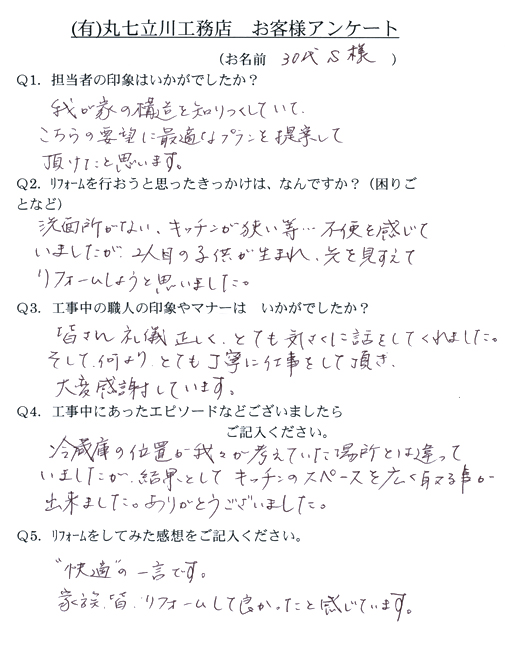 (有)丸七立川工務店　お客様アンケート
(お名前　30代 S 様　)
Q1．担当者の印象はいかがでしたか？
我が家の構造を知りつくしていて、
こちらの要望に最適なプランを提案して
頂けたと思います。
Q2．ﾘﾌｫｰﾑを行おうと思ったきっかけは、なんですか？（困りご
となど）
洗面所がない、キッチンが狭い等…不便を感じて
いましたが、2人目の子供が生まれ、先を見すえて
リフォームしようと思いました。
Q3．工事中の職人の印象やマナーは　いかがでしたか？
皆さん礼儀正しく、とても気さくに話をしてくれました。
そして、何より、とても丁寧に仕事をして頂き、
大変感謝しています。
Q4．工事中にあったエピソードなどございましたら
ご記入ください。
冷蔵庫の位置が我々が考えていた場所とは違って
いましたが、結果として キッチンのスペースを広く取る事が
出来ました。ありがとうございました。
Q5．ﾘﾌｫｰﾑをしてみた感想をご記入ください。
"快適"の一言です。
家族、皆、リフォームして良かったと感じています。